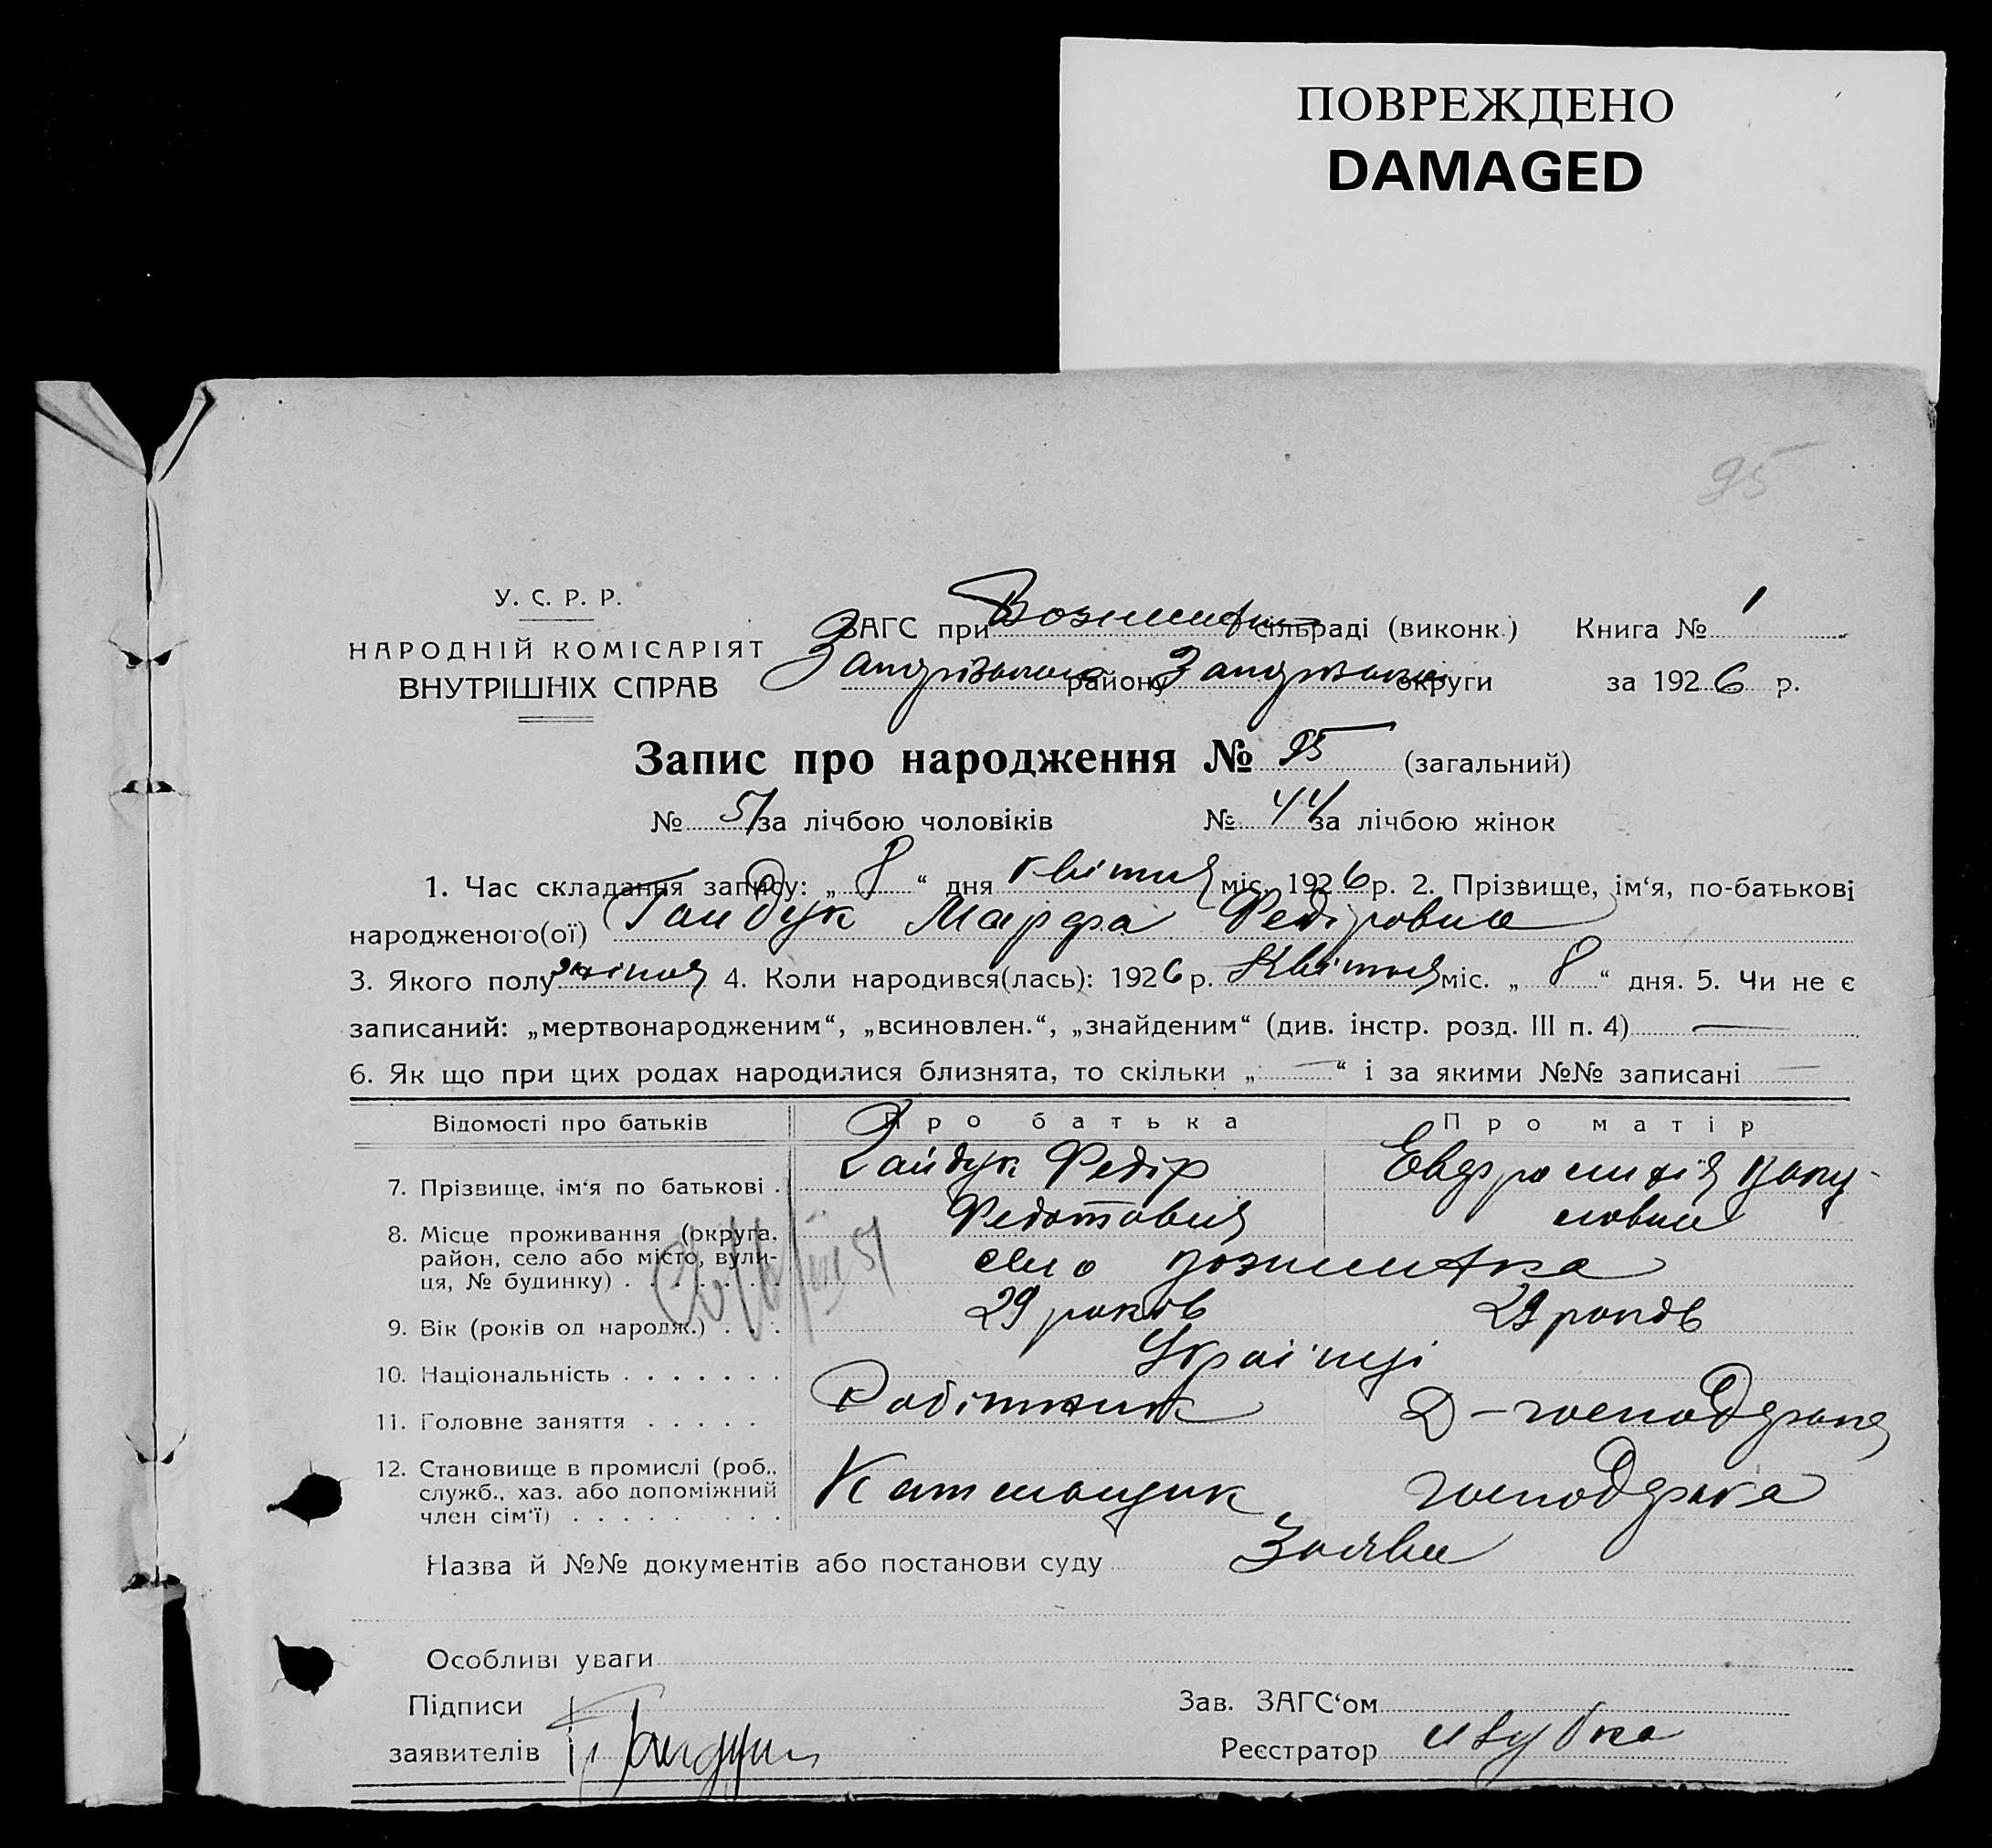 ПОВРЕЖДЕНО
DAMAGED
95
У. С. Р. Р.
НАРОДНІЙ КОМІСАРІЯТ
ВНУТРІШНІХ СПРАВ
ЗАГС при сільраді (виконк.) Книга № 1
району округи за 1926 р.
Запис про народження № 95 (загальний)
№ 51 за лічбою чоловіків № 44 за лічбою жінок
1. Час складання запису: „ 8 “ дня квітня міс. 1926 р. 2. Прізвище, ім‘я, по-батькові
народженого(ої) Гайдук Марфа Федіровна
3. Якого полу жіноч 4. Коли народився(лась): 1926 р. Квітня міс. „ 8 “ дня. 5. Чи не є
записаний: „мертвонародженим“, „всиновлен.“, „знайденим“ (див. інстр. розд. III п. 4) —
6. Як що при цих родах народилися близнята, то скільки „ — “ і за якими №№ записані —
Відомості про батьків Про батька Про матір
7. Прізвище, ім‘я по батькові . Гайдук Федір
Федотович
8. Місце проживання (округа, район, село або місто, вулиця, № будинку) . . . . . . . село
9. Вік (років од народж.) . . . 29 років 29 років
10. Національність . . . . . . . Українці
11. Головне заняття . . . . . Робітник Д-господарка
12. Становище в промислі (роб., служб., хаз. або допоміжний член сім‘ї) . . . . . . . . . господарка
Назва й №№ документів або постанови суду Заява
Особливі уваги
Підписи Зав. ЗАГС‘ом
заявителів Гайдук Реєстратор